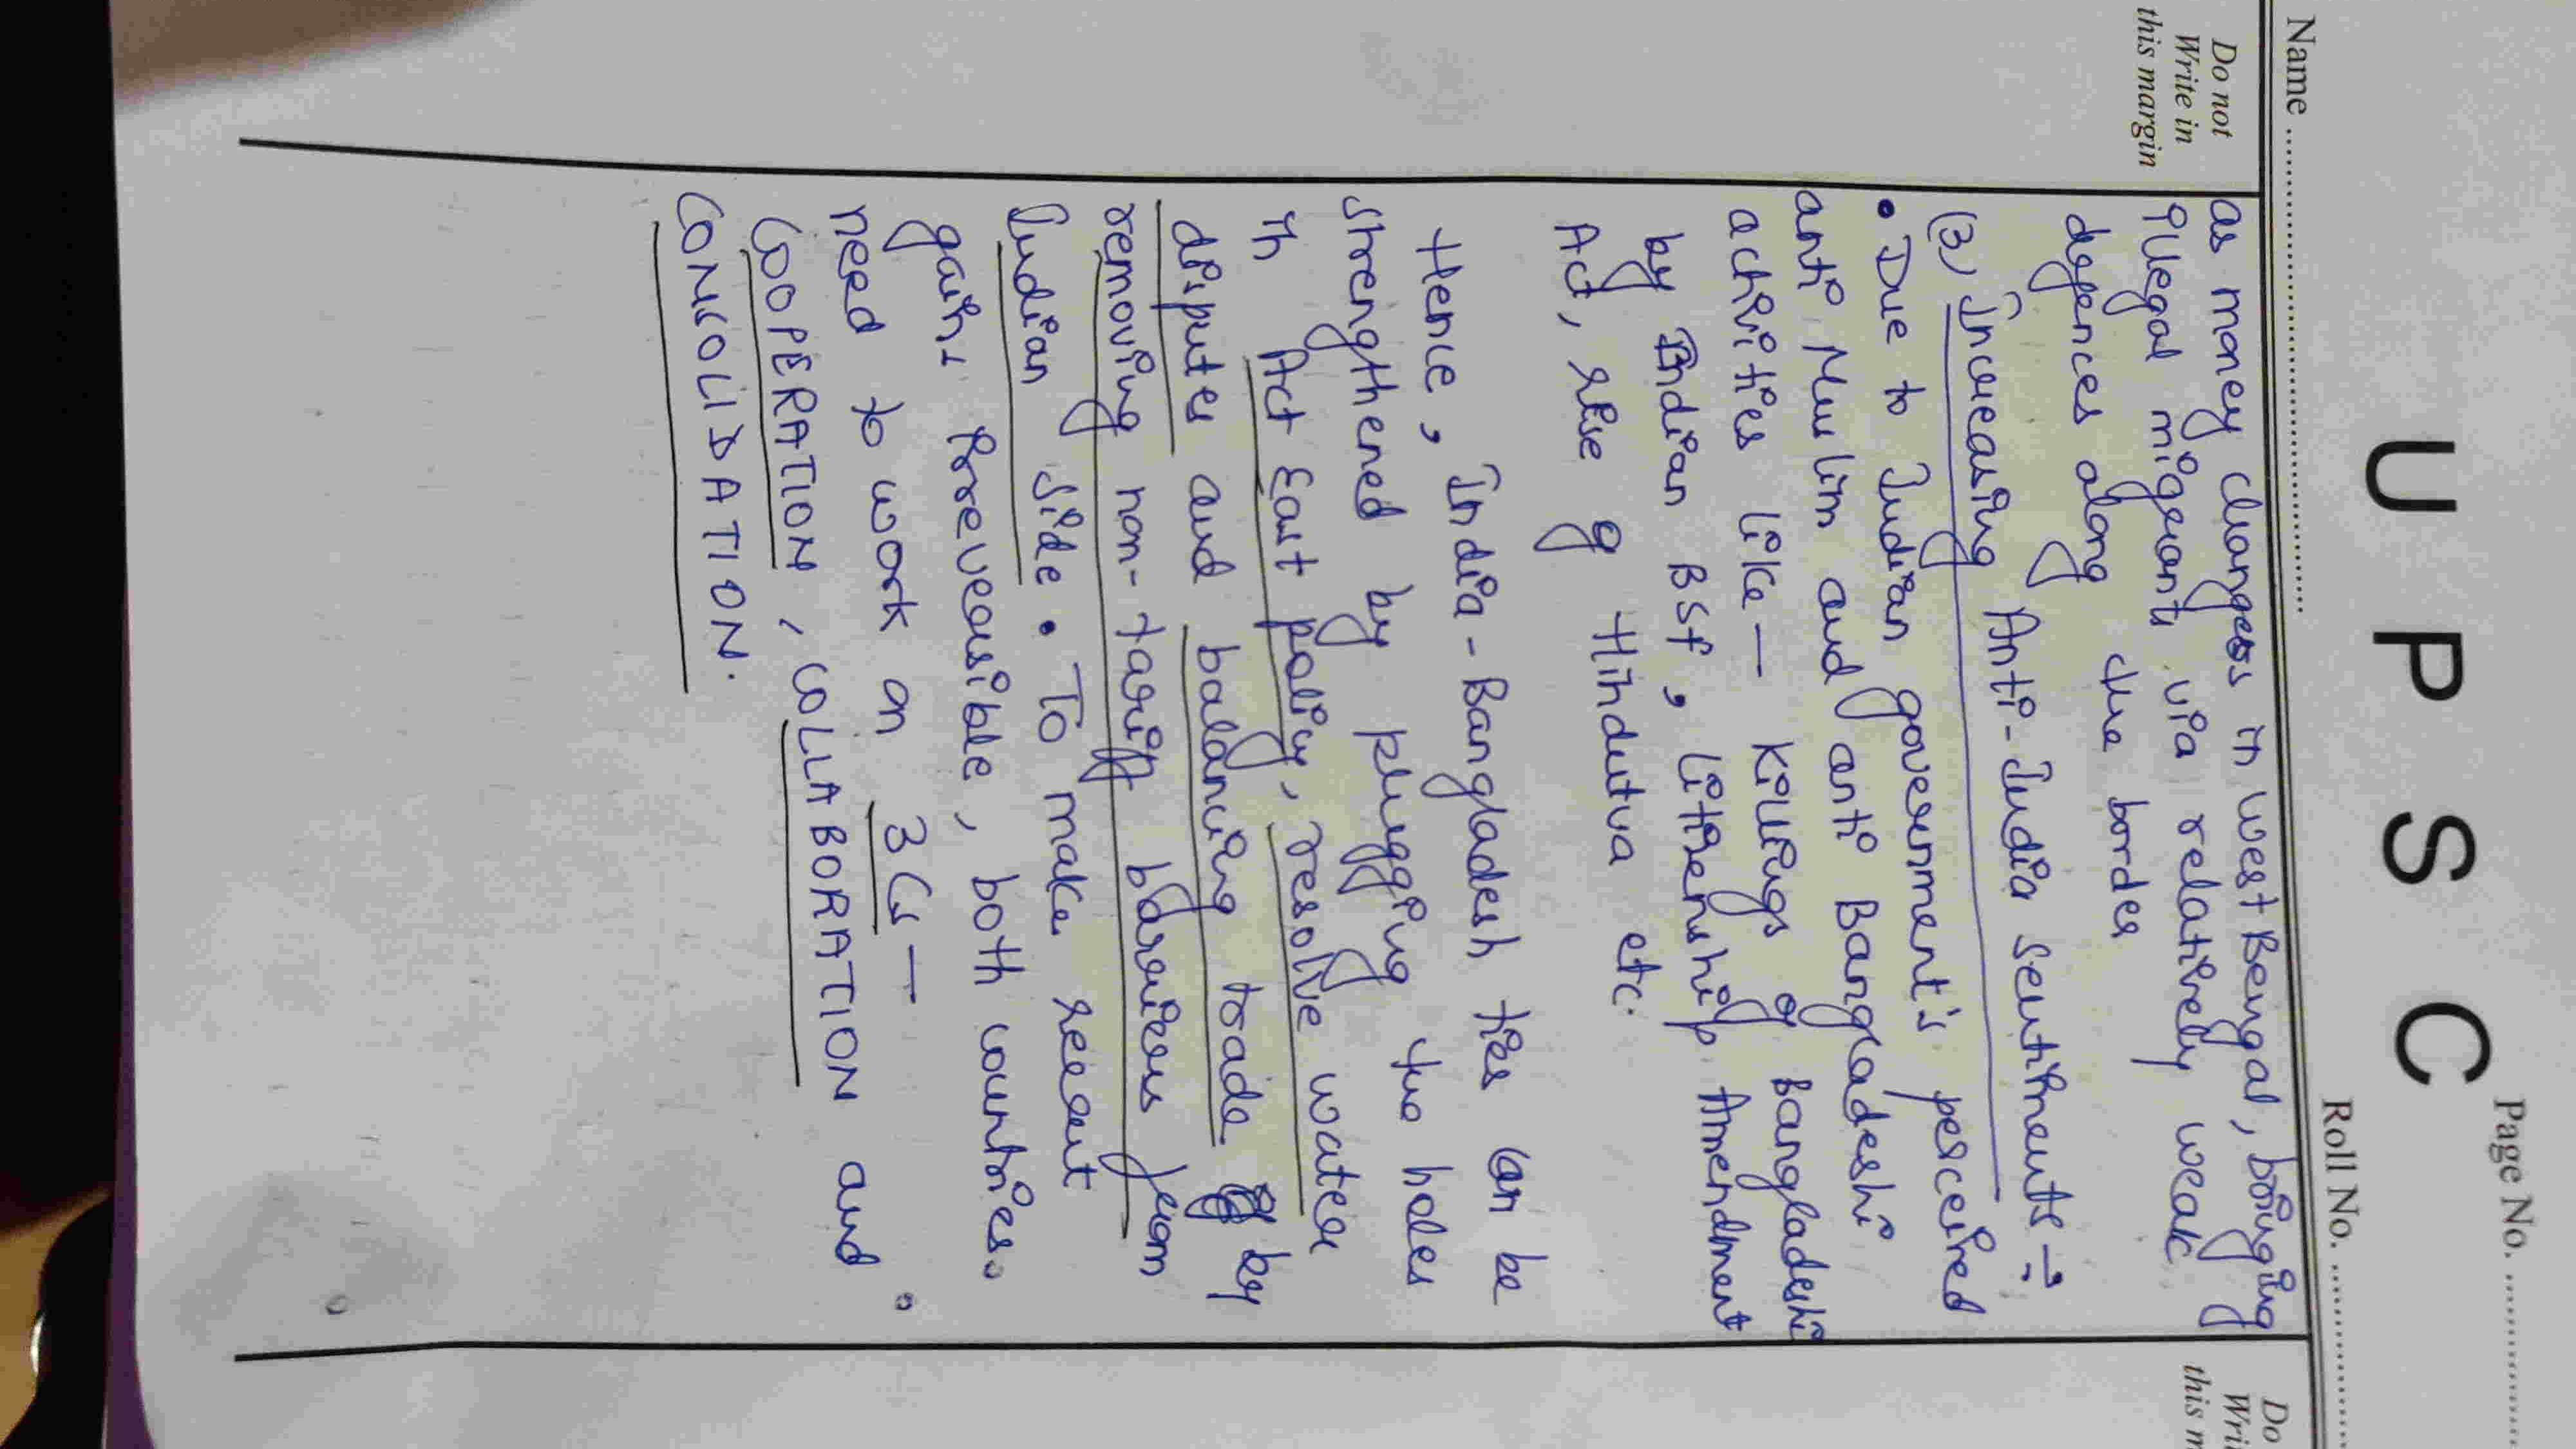 UPSC
Page No. ..................
Name ..................................................
Roll No. ..................
Do not
Write in
this margin
Do
Wri
this m
as money changes in West Bengal, bringing
illegal migrants via relatively weak
defences along the border
(3) Increasing Anti-India sentiments →
• Due to Indian government's perceived
anti Muslim and anti Bangladeshi
activities like — killings of Bangladeshi
by Indian BSF, Citizenship Amendment
Act, rise of Hindutva etc.
Hence, India-Bangladesh ties can be
strengthened by plugging the holes
in Act East policy, resolve water
disputes and balancing trade by
removing non-tariff barriers from
Indian side. To make recent
gains irreversible, both countries
need to work on 3Cs —
COOPERATION, COLLABORATION and
CONSOLIDATION.